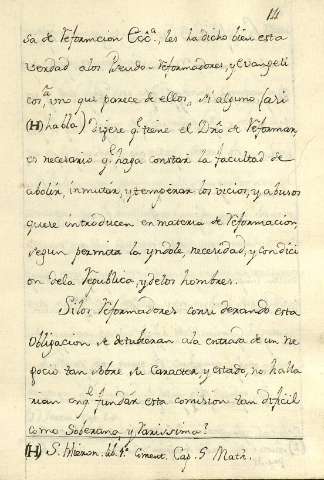 14
sa de Reformcion Ccc.ª, les ha dicho bien esta
verdad alos Pseudo-Reformadores, y Evangeli
cos, uno que parece de ellos, si alguno (asi
(H) habla) dijere q.e tiene el Dño de Reformar
es necesario q.e haga constar la facultad de
abolir, inmutar, y temperar los vicios, y abusos
quese introducen en materia de Reformacion,
segun permita la yndole, necesidad, y condici
on dela Republica, y delos hombres.
Silos Reformadores considerando esta
Obligacion se detubieran ala entrada de un ne
gocio tan sobre su Caracter, y estado, no halla
rian en q.e fundar esta comision tan dificil
como Soberana, y rarissima?
(H) S. Hieron. lib. 1.º Coment. Cap. 5 Math.